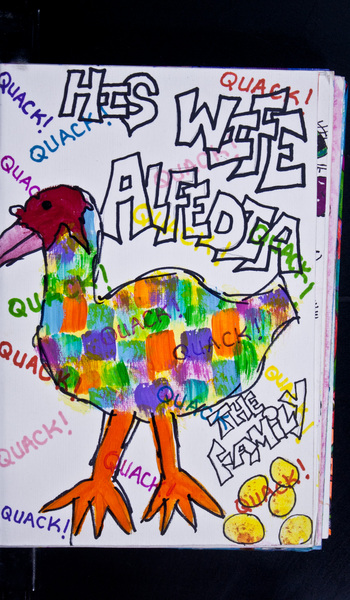 HIS
WIFE
ALFEDIA
QUACK!
QUACK!
QUACK!
QUACK!
QUACK!
QUACK!
QUACK!
QUACK!
QUACK!
QUACK!
QUACK!
QUACK!
QUACK!
THE
FAMILY
QUACK!
QUACK!
QUACK!
QUACK!